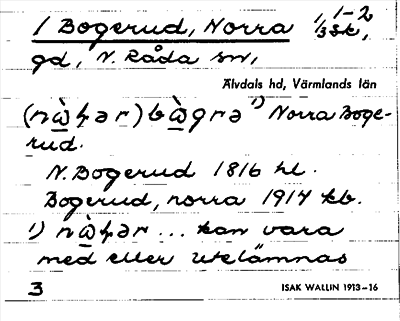 1 Bogerud, Norra 1/3 sk, 1-2
gd, N. Råda sn,
Älvdals hd, Värmlands län
(nὼþər) bὼgrə ¹) Norra Boge-
rud.
N. Bogerud 1816 hl.
Bogerud, norra 1914 kb.
1) nὼþər ... kan vara
med eller utelämnas
3 ISAK WALLIN 1913–16